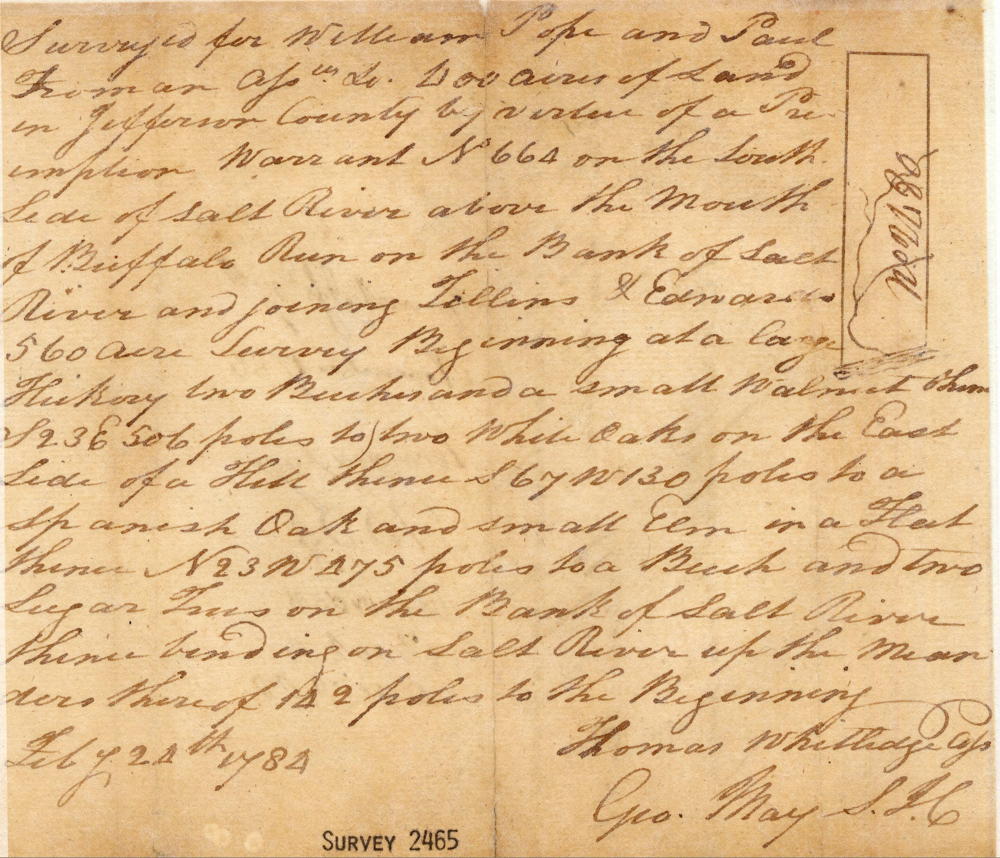 Surveyed for William Pope and Paul
Froman Ass.ees &c. 400 acres of Land
in Jefferson County by virtue of a Pre-
emption Warrant No 664 on the South
Side of Salt River above the Mouth
of Buffalo Run on the Bank of Salt
River and joining & Edwards
560 acre Survey Beginning at a large
Hickory two Beeches and a small Walnut thence
S23E 506 poles to two White Oaks on the East
Side of a Hill thence S67W 130 poles to a
Spanish Oak and small Elm in a Flat
thence N23W 475 poles to a Beech and two
Sugar Trees on the Bank of Salt River
thence binding on Salt River up the Mean
ders thereof 142 poles to the Beginning
Feby 24th 1784
Thomas Whitledge Ass
Geo. May S.J.C
SURVEY 2465